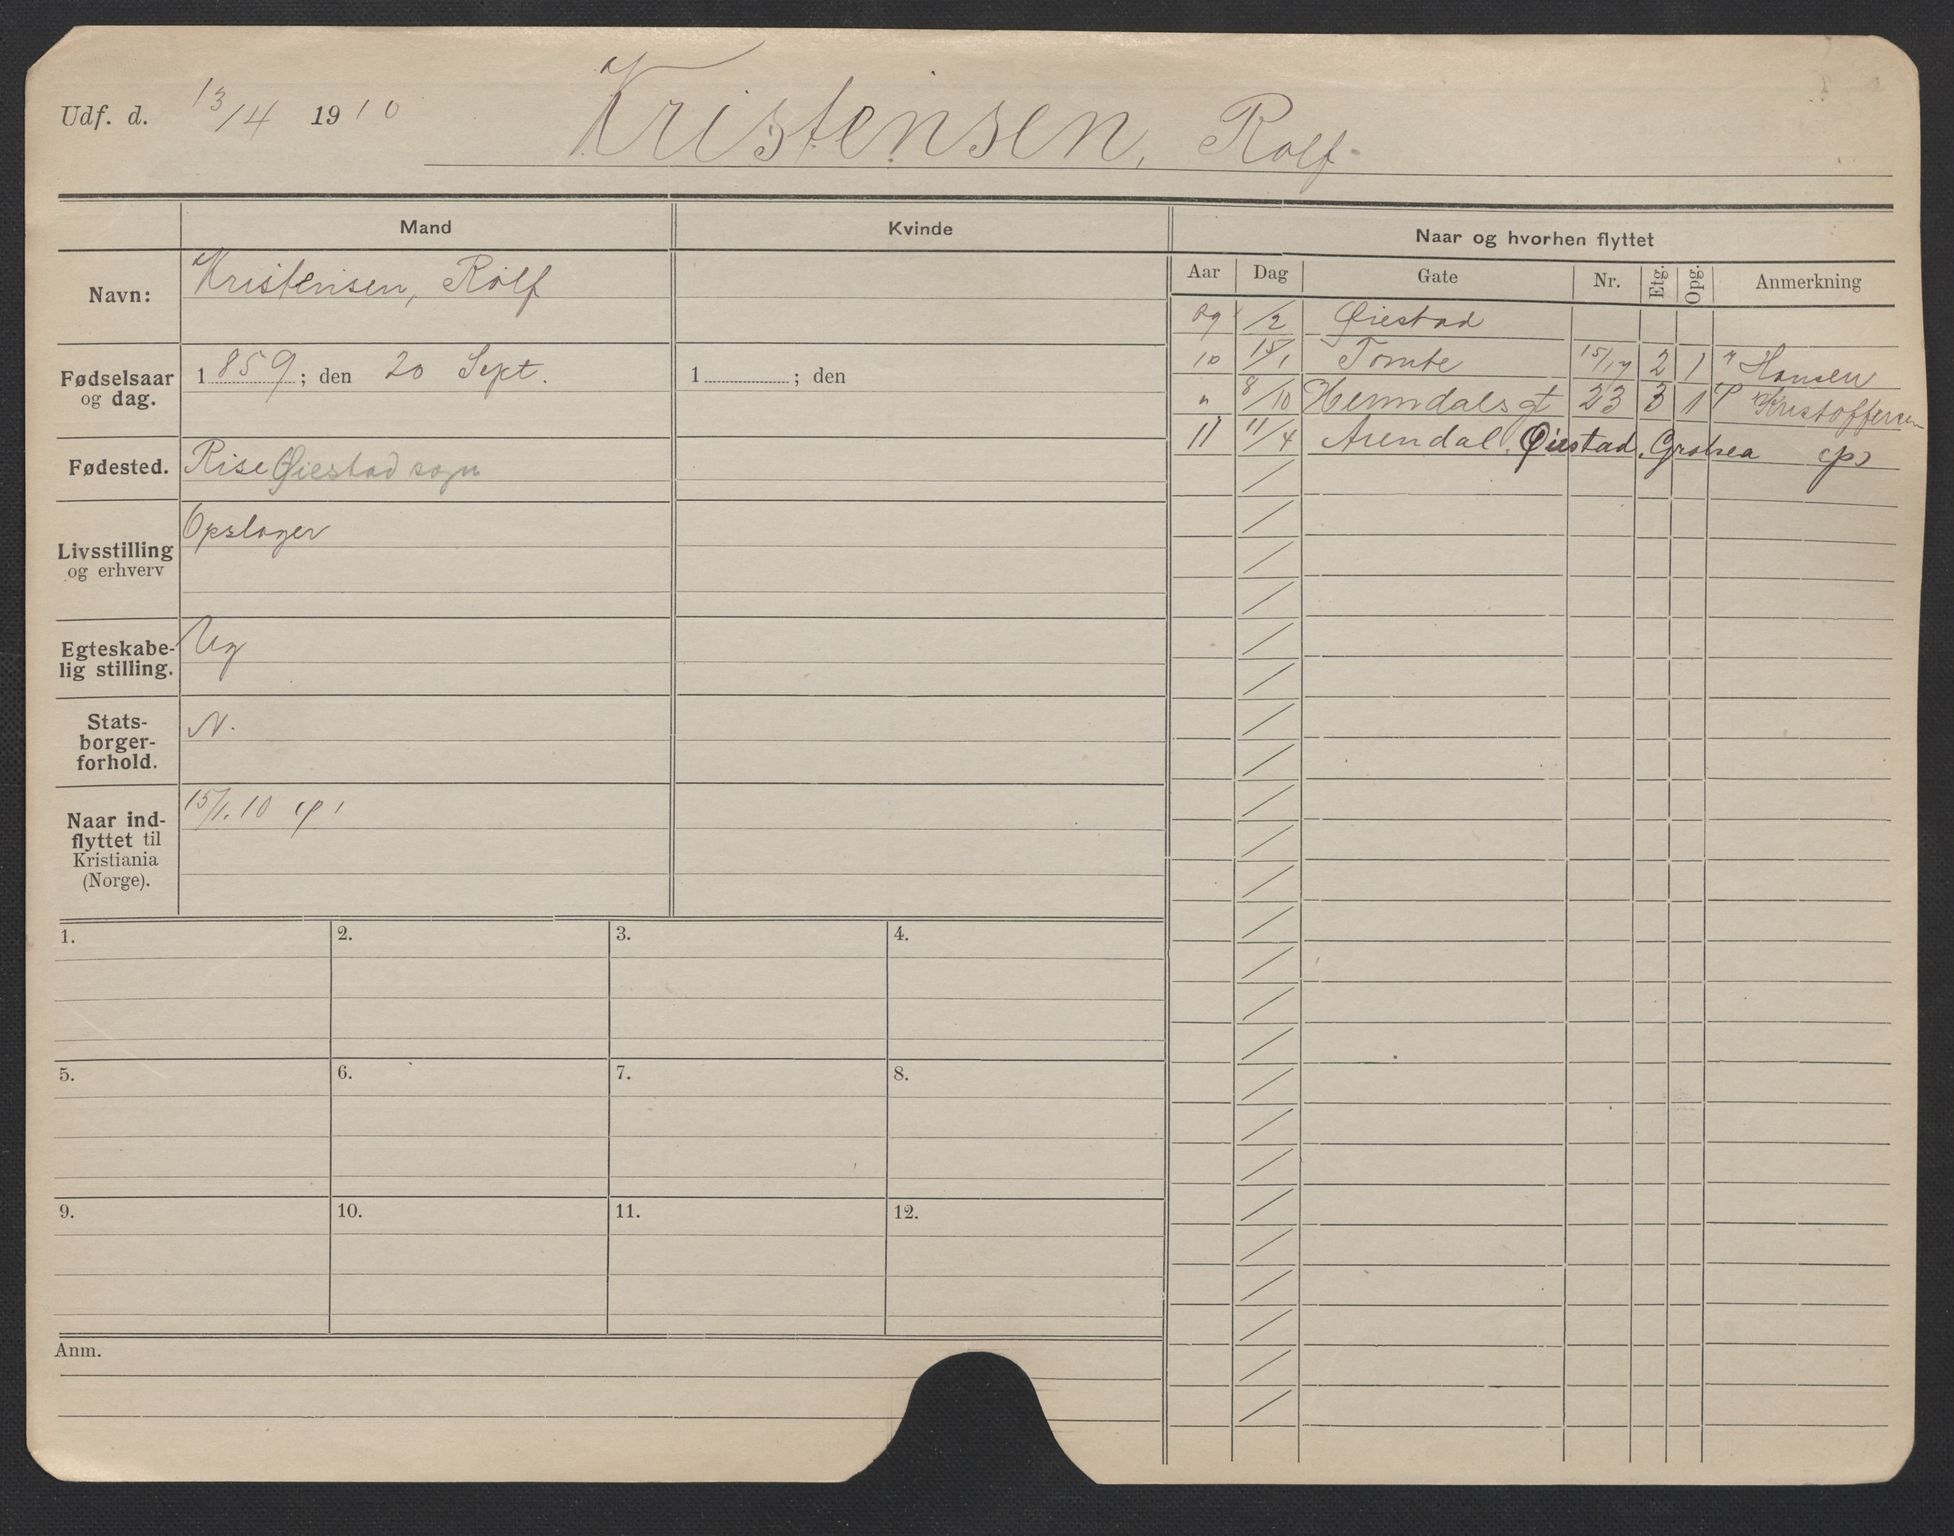 Udf. d. 13/4 1910 Kristensen, Rolf.
Mand Kvinde Naar og hvorhen flyttet
Navn: Kristensen, Rolf
Fødselsaar og dag. 1859; den 20 Sept. 1 ; den
Fødested. Rise Øiestad sogn
Livsstilling og erhverv Opslager
Egteskabe-
lig stilling. Ug
Stats-
borger-
forhold. N.
Naar ind-
flyttet til
Kristiania
(Norge). 15/1.10
Aar Dag Gate Nr. Etg. Opg. Anmerkning
09 /2 Øiestad
10 15/1 Tomte 15/17 2 1 Hansen
" 8/10 Heimdalsgt 23 3 1 Kristoffersen
11 11/4 Arendal, Øiestad, (p)
1. 2. 3. 4.
5. 6. 7. 8.
9. 10. 11. 12.
Anm.